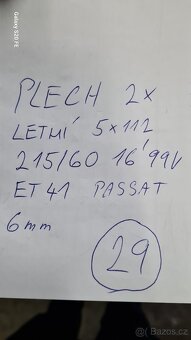 Galaxy S20 FE
PLECH 2x
LETNÍ 5x112
215/60 16' 99V
ET 41 PASSAT
6mm
29
© Bazoš.cz